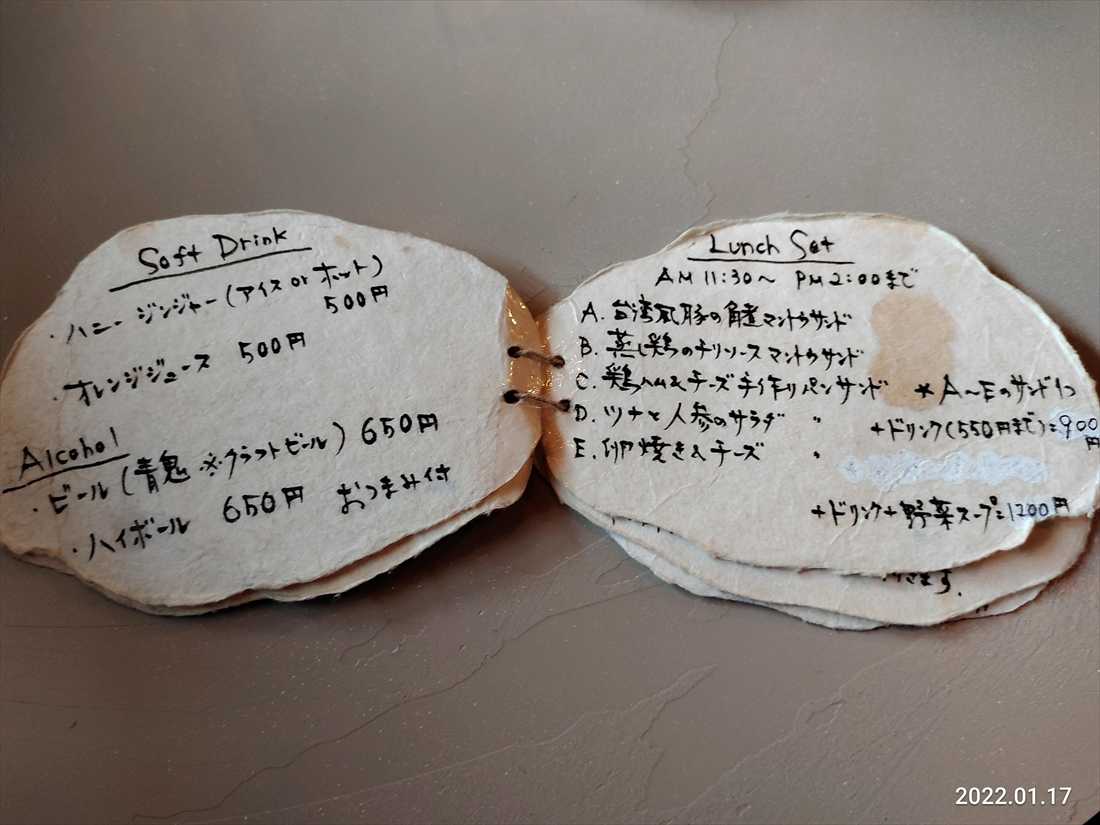 Soft Drink
・ハニージンジャー(アイス or ホット)
500円
・オレンジジュース 500円
Alcohol
・ビール(青鬼 ※クラフトビール) 650円
・ハイボール 650円 おつまみ付
Lunch Set
AM 11:30〜 PM 2:00まで
A. 台湾風豚の角煮マントウサンド
B. 蒸し鶏のチリソースマントウサンド
C. 鶏ハム&チーズ手作りパンサンド
D. ツナと人参のサラダ 〃
E. 卵焼き&チーズ 〃
★A〜Eのサンド1つ
+ドリンク(550円まで)=900円
+ドリンク+野菜スープ=1200円
きます。
2022.01.17